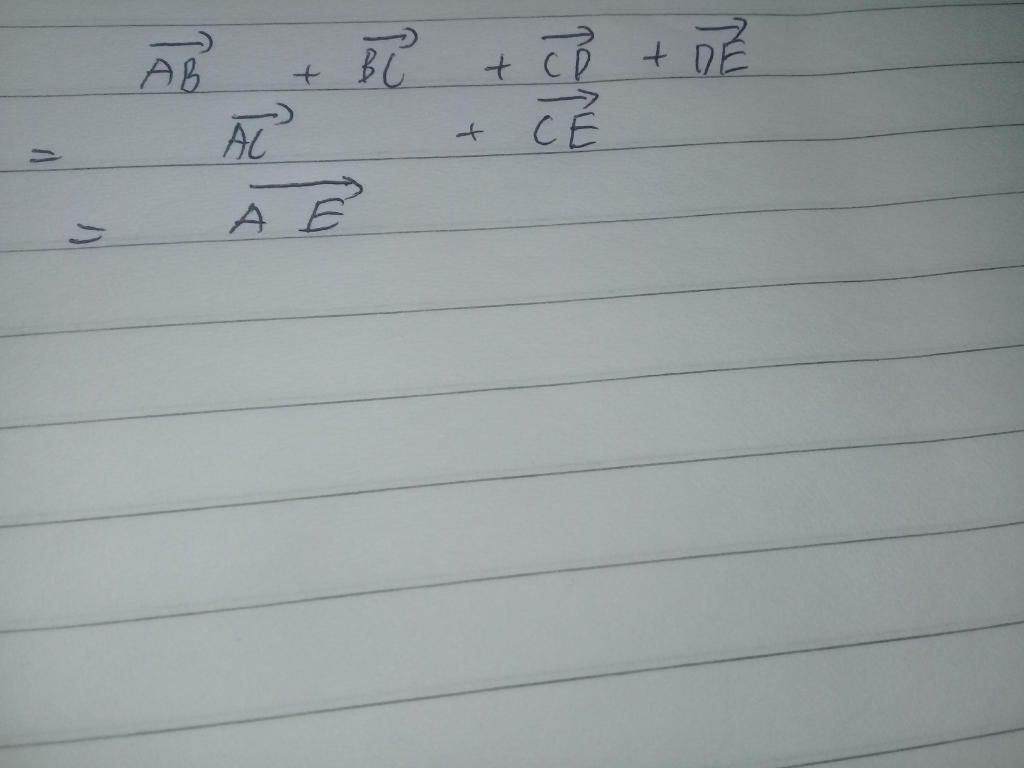 $\overrightarrow{AB} + \overrightarrow{BC} + \overrightarrow{CD} + \overrightarrow{DE}$
$= \overrightarrow{AC} + \overrightarrow{CE}$
$= \overrightarrow{AE}$